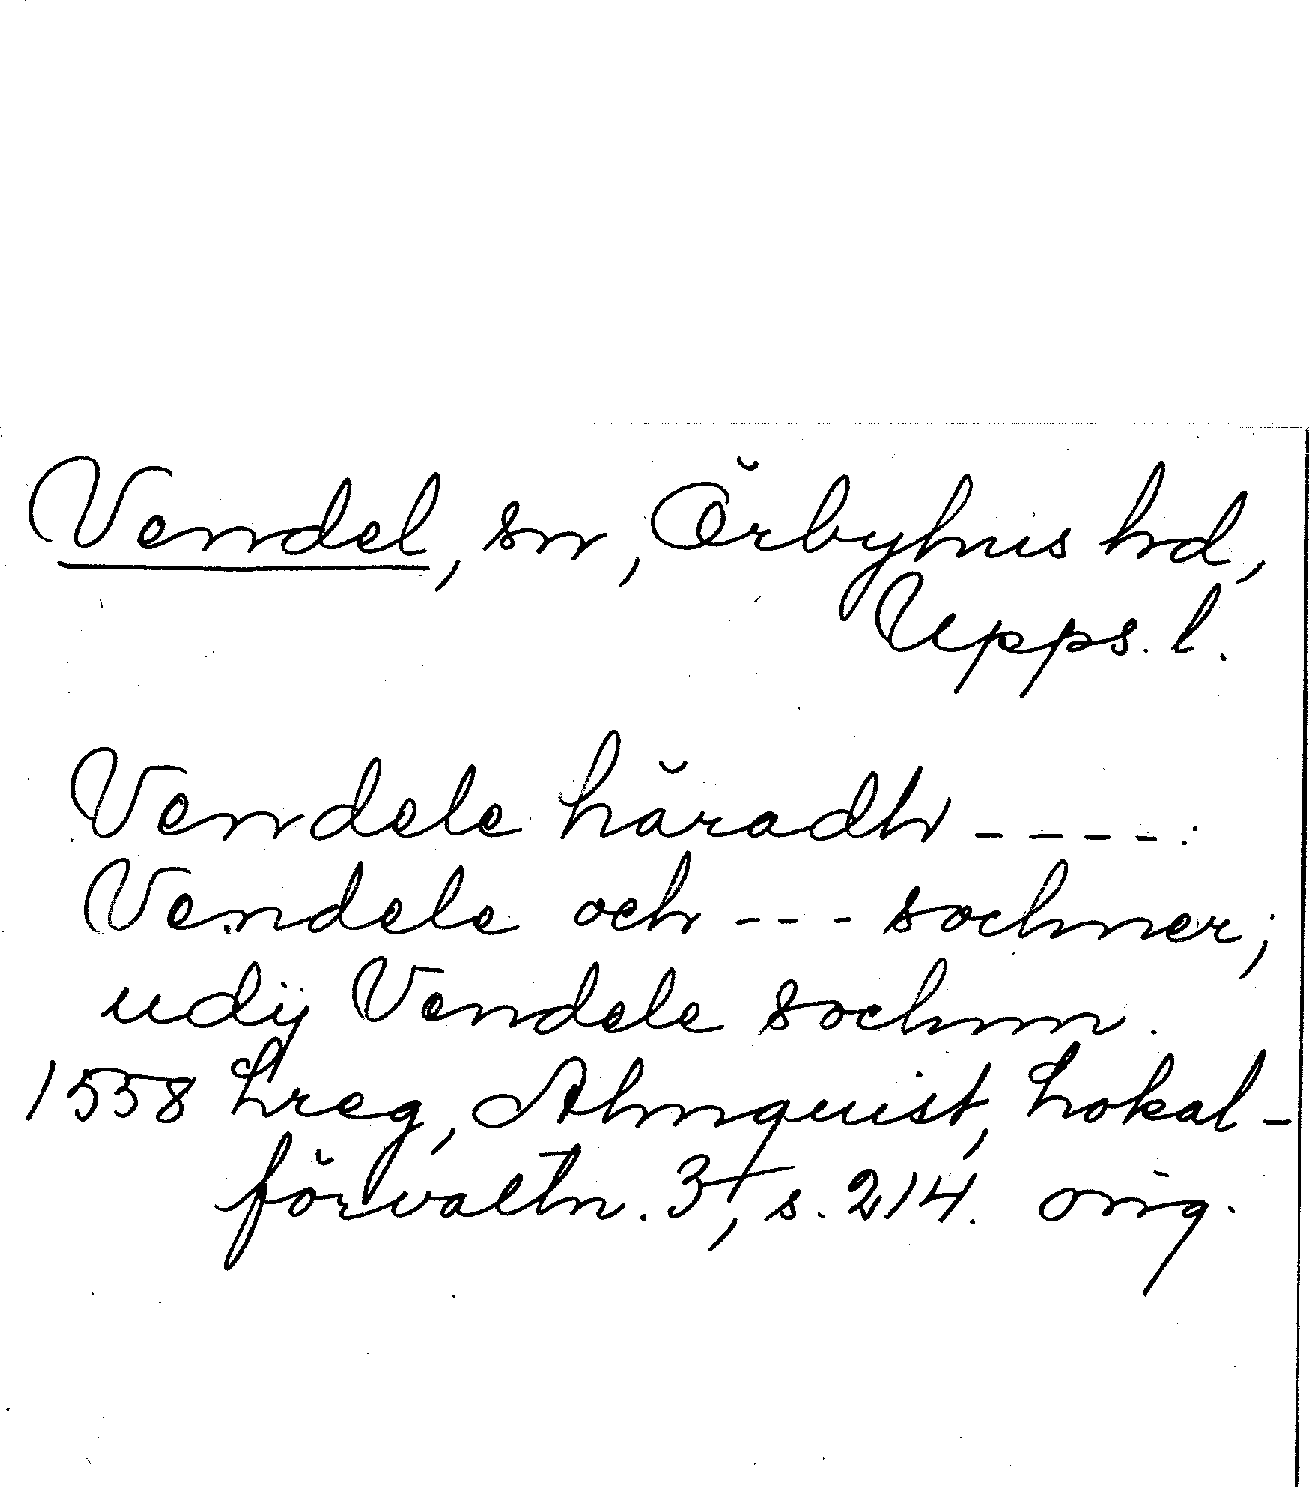 Vendel, sn, Örbyhus hd,
Upps. l.
Vendele häradh ----.
Vendele och --- sochner;
udij Vendele sochnn.
1558 Lreg, Almquist, Lokal-
förvaltn. 3, s. 214. orig.